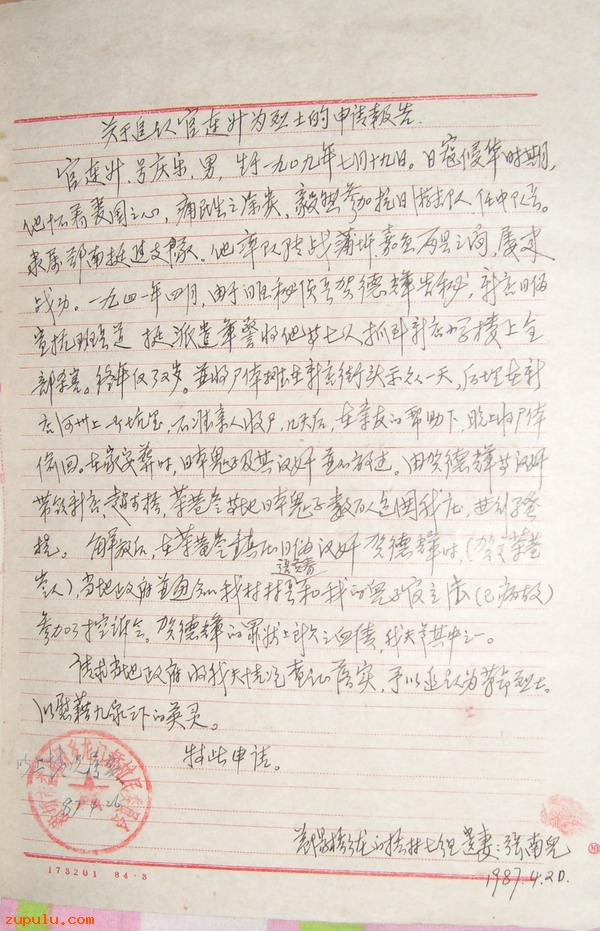 关于追认官连升为烈士的申请报告.
官连升,号庆乐,男,生于一九〇九年七月十九日。日寇侵华时期,
他怀着爱国之心,痛民生之涂炭,毅然参加抗日游击队任中队长。
隶属鄂南挺进支队。他率队转战蒲圻嘉鱼两县之间,屡建
战功。一九四一年四月,由于日寇秘侦长贺德辉告秘,新店日伪
挺派遣军警将他等七人抓到新店小学楼上全
部杀害。终年仅33岁。并将尸体摆在新店街头示众一天,后埋在新
店河州上一个坑里,不准亲人收尸,几天后,在亲友的帮助下,晚上将尸体
偷回。在家安葬时,日本鬼子及其汉奸 由贺德辉等汉奸
带领新店、赵李桥,茶菴岭等地日本鬼子数百人包围我庄,进行骚
扰。解放后,在茶菴岭镇压日伪汉奸贺德辉时,(贺是茶菴
岭人),当地政府并通知我村村长和我的儿子官立法(已病故)
参加了控诉会。贺德辉的罪状上所欠之血债,我夫是其中之一。
请求当地政府将我夫情况查证落实,予以追认为革命烈士。
以慰藉九泉之下的英灵。
特此申请。
87.4.26
村七组 遗妻:张南儿
1987.4.20.
173201 84·3
zupulu.com